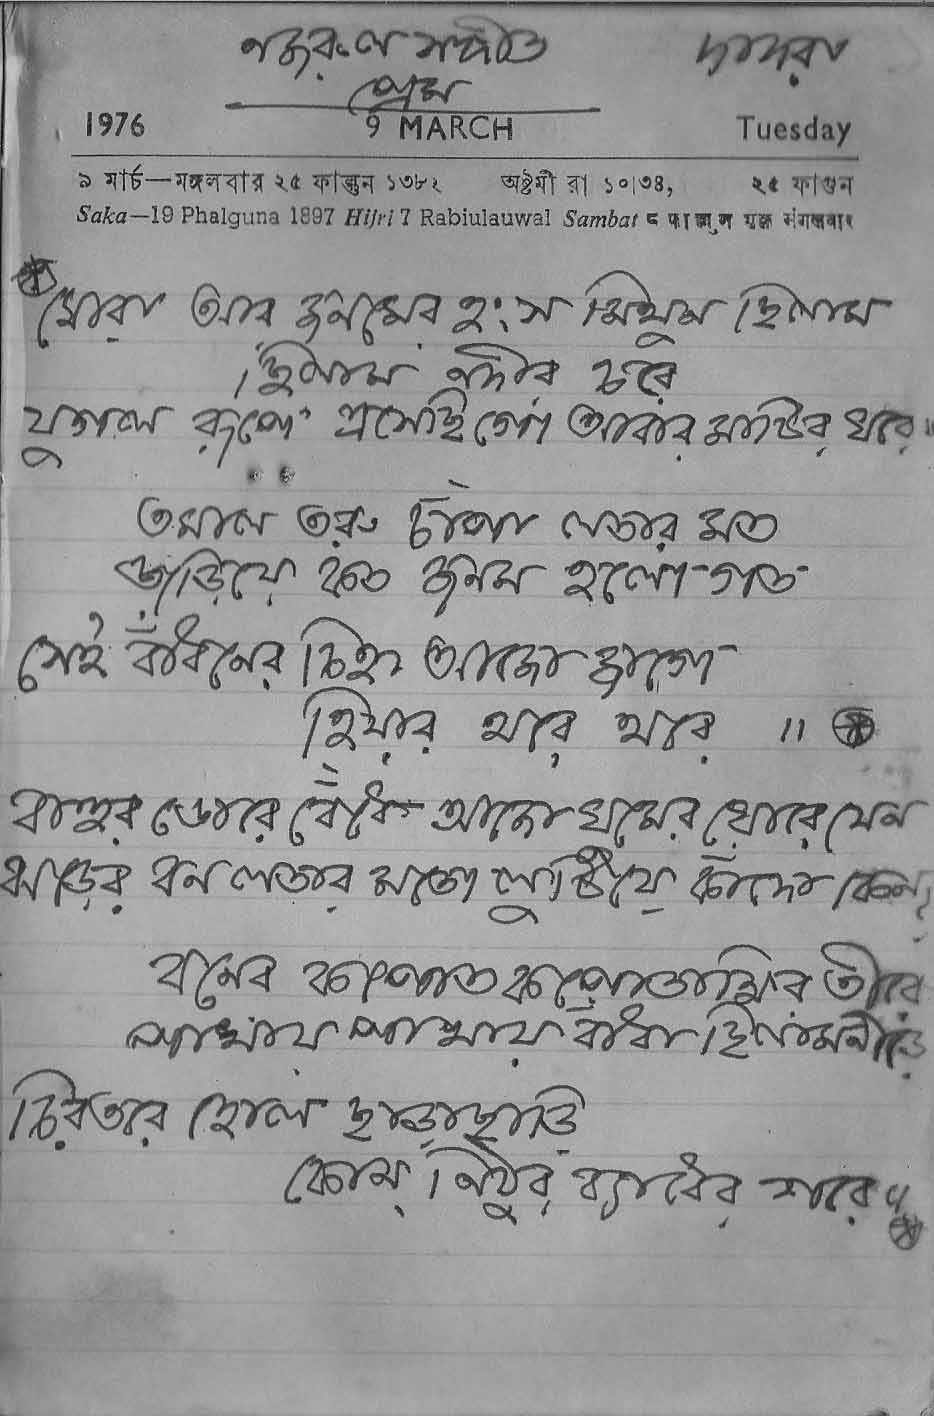 নজরুল সঙ্গীত দাদরা
প্রেম
1976 9 MARCH Tuesday
৯ মার্চ—মঙ্গলবার ২৫ ফাল্গুন ১৩৮২ অষ্টমী রা ১০।৩৪, ২৫ ফাগুন
Saka—19 Phalguna 1897 Hijri 7 Rabiulauwal Sambat ८ फाल्गुन शुक्ल मंगलवार
মোরা আর জনমের হংস মিথুন ছিলাম
ছিলাম নদীর চরে
যুগল রূপে এসেছি গো আবার মাটির ঘরে॥
তমাল তরু চাঁপা লতার মত
জড়িয়ে কত জনম হলো গত
সেই বাঁধনের চিহ্ন আজো জাগে
হিয়ার থরে থরে ॥
বাহুর ডোরে বেঁধে আজো ঘুমের ঘোরে যেন
ঝড়ের বন লতার মতো লুটিয়ে কাঁদো কেন
বনের কপোত কপোতাক্ষির তীরে
পাখায় পাখায় বাঁধা ছিলাম নীড়ে
চিরতরে হোল ছাড়াছাড়ি
কোন্ নিঠুর ব্যাধের শরে॥